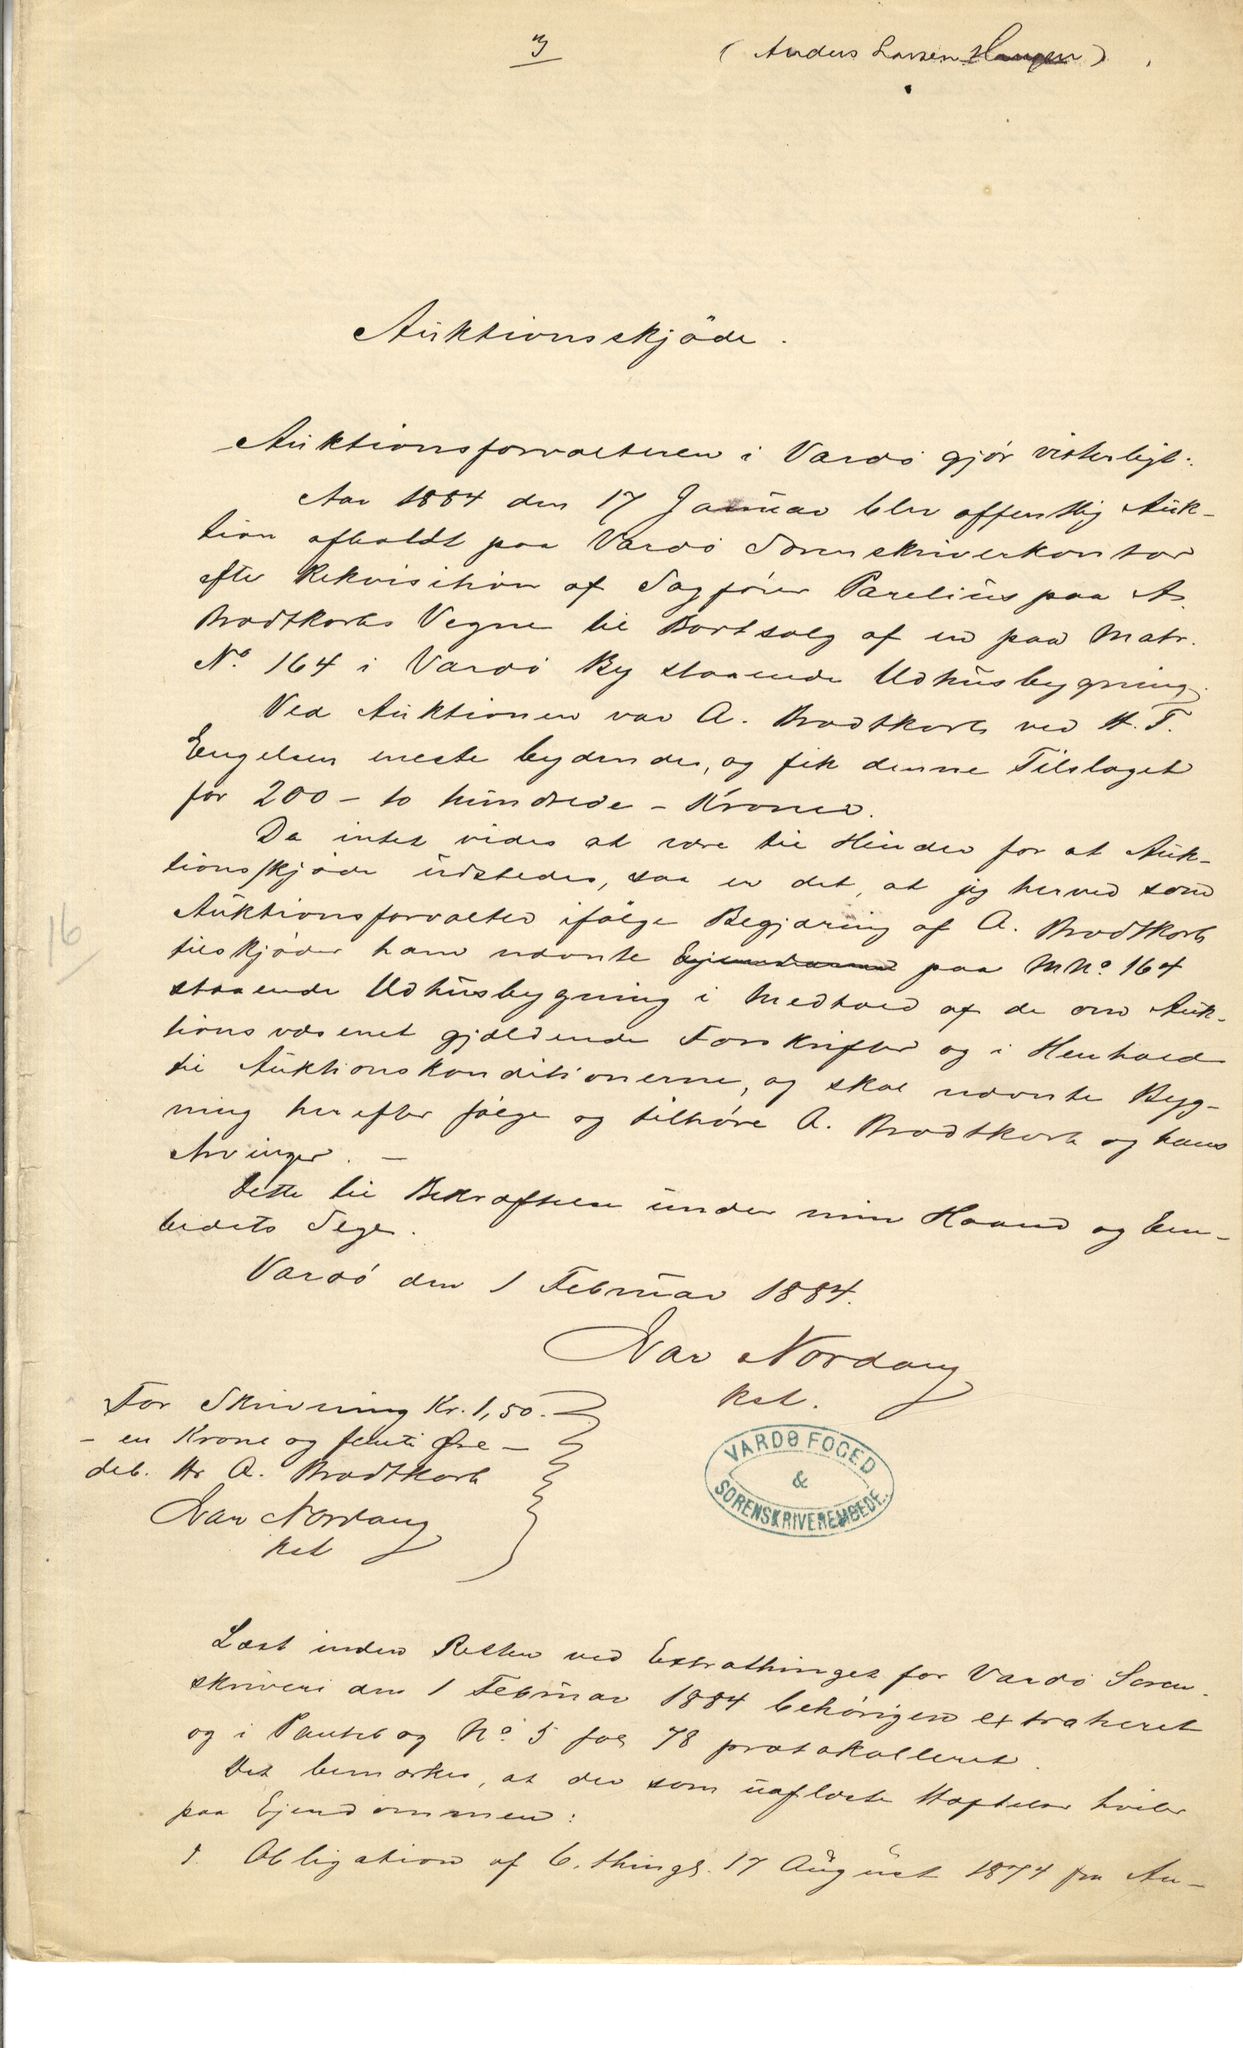 3 (Anders Larsen ~~Haugen~~)
Auktionsskjöde.
Auktionsforvalteren i Vardö gjör vitterligt:
Aar 1884 den 17 Januar blev offentlig Auk-
tion afholdt paa Vardö Sorenskriverkontor
efter Rekvisition af Sagförer Parelius paa A.
Brodtkorbs Vegne til Bortsalg af en paa Matr.
No. 164 i Vardö By staaende Udhusbygning.
Ved Auktionen var A. Brodtkorb ved H. T.
Engelsen eneste bydende, og fik denne Tilslaget
for 200 – to hundrede – Kroner.
Da intet vides at være til Hinder for at Auk-
tionsskjöde udstedes, saa er det, at jeg herved som
Auktionsforvalter ifölge Begjæring af A. Brodtkorb
tilskjöder ham nævnte ~~Ejendom~~ paa MNo. 164
staaende Udhusbygning i Medhold af de om Auk-
tionsvæsenet gjældende Forskrifter og i Henhold
til Auktionskonditionerne, og skal nævnte Byg-
ning herefter fölge og tilhöre A. Brodtkorb og hans
Arvinger. –
Dette til Bekræftelse under min Haand og Em-
bedets Segl.
Vardö den 1 Februar 1884.
Ivar Nordang
kst.
For Skrivning Kr. 1,50.
– en Krone og femti Øre –
deb. Hr A. Brodtkorb
Ivar Nordang
kst
VARDØ FOGED
&
SORENSKRIVEREMBEDE.
16
Læst inden Retten ved Extrathinget for Vardö Soren-
skriveri den 1 Februar 1884 behörigen extraheret
og i Pantebog No. 5 fol 78 protokolleret.
Det bemærkes, at der som uaflöste Hæftelser hviler
paa Ejendommen:
1. Obligation af 6, thingl. 17 August 1874 fra An-